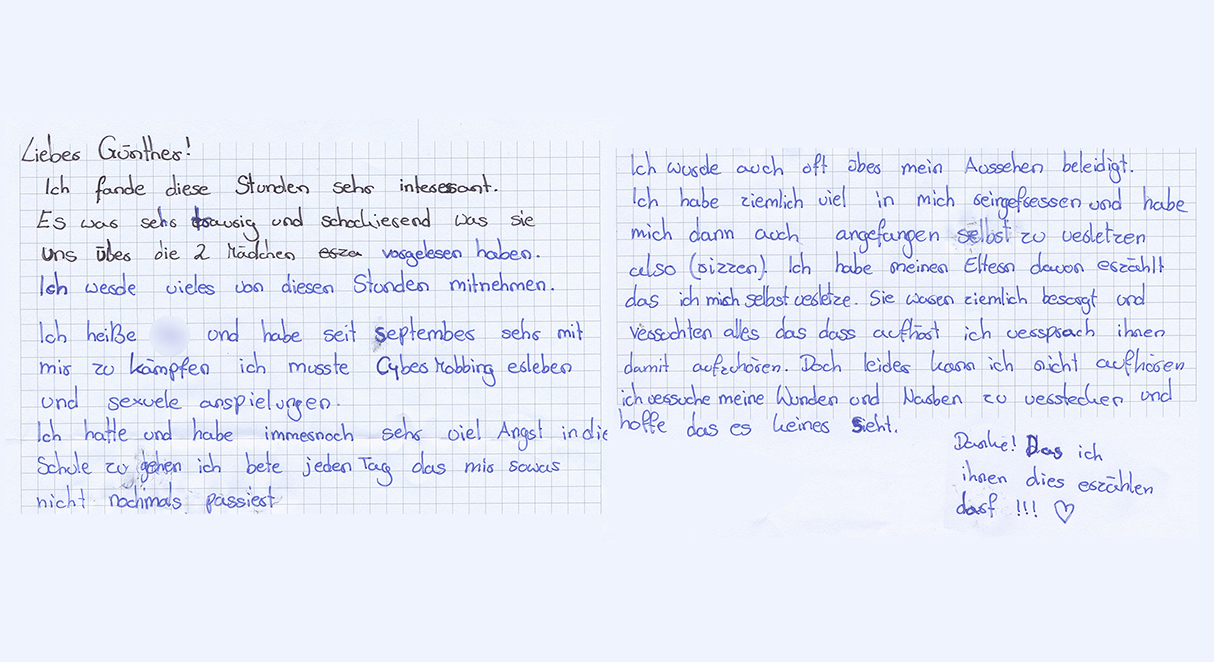 Lieber Günther!
Ich fande diese Stunden sehr interessant.
Es war sehr trausig und schockierend was sie
uns über die 2 Mädchen erza vorgelesen haben.
Ich werde vieles von diesen Stunden mitnehmen.
Ich heiße und habe seit september sehr mit
mir zu kämpfen ich musste Cyber Mobbing erleben
und sexuele anspielungen.
Ich hatte und habe immernoch sehr viel Angst in die
Schule zu gehen ich bete jeden Tag das mir sowas
nicht nochmals passiert
Ich wurde auch oft über mein Aussehen beleidigt.
Ich habe ziemlich viel in mich reingefressen und habe
mich dann auch angefangen selbst zu verletzen
also (rizzen). Ich habe meinen Eltern davon erzählt
das ich mich selbst verletze. Sie waren ziemlich besorgt und
versuchten alles das dass aufhört ich versprach ihnen
damit aufzuhören. Doch leider kann ich nicht aufhören
ich versuche meine Wunden und Narben zu verstecken und
hoffe das es keiner sieht.
Danke! Das ich
ihnen dies erzählen
darf !!! ♡